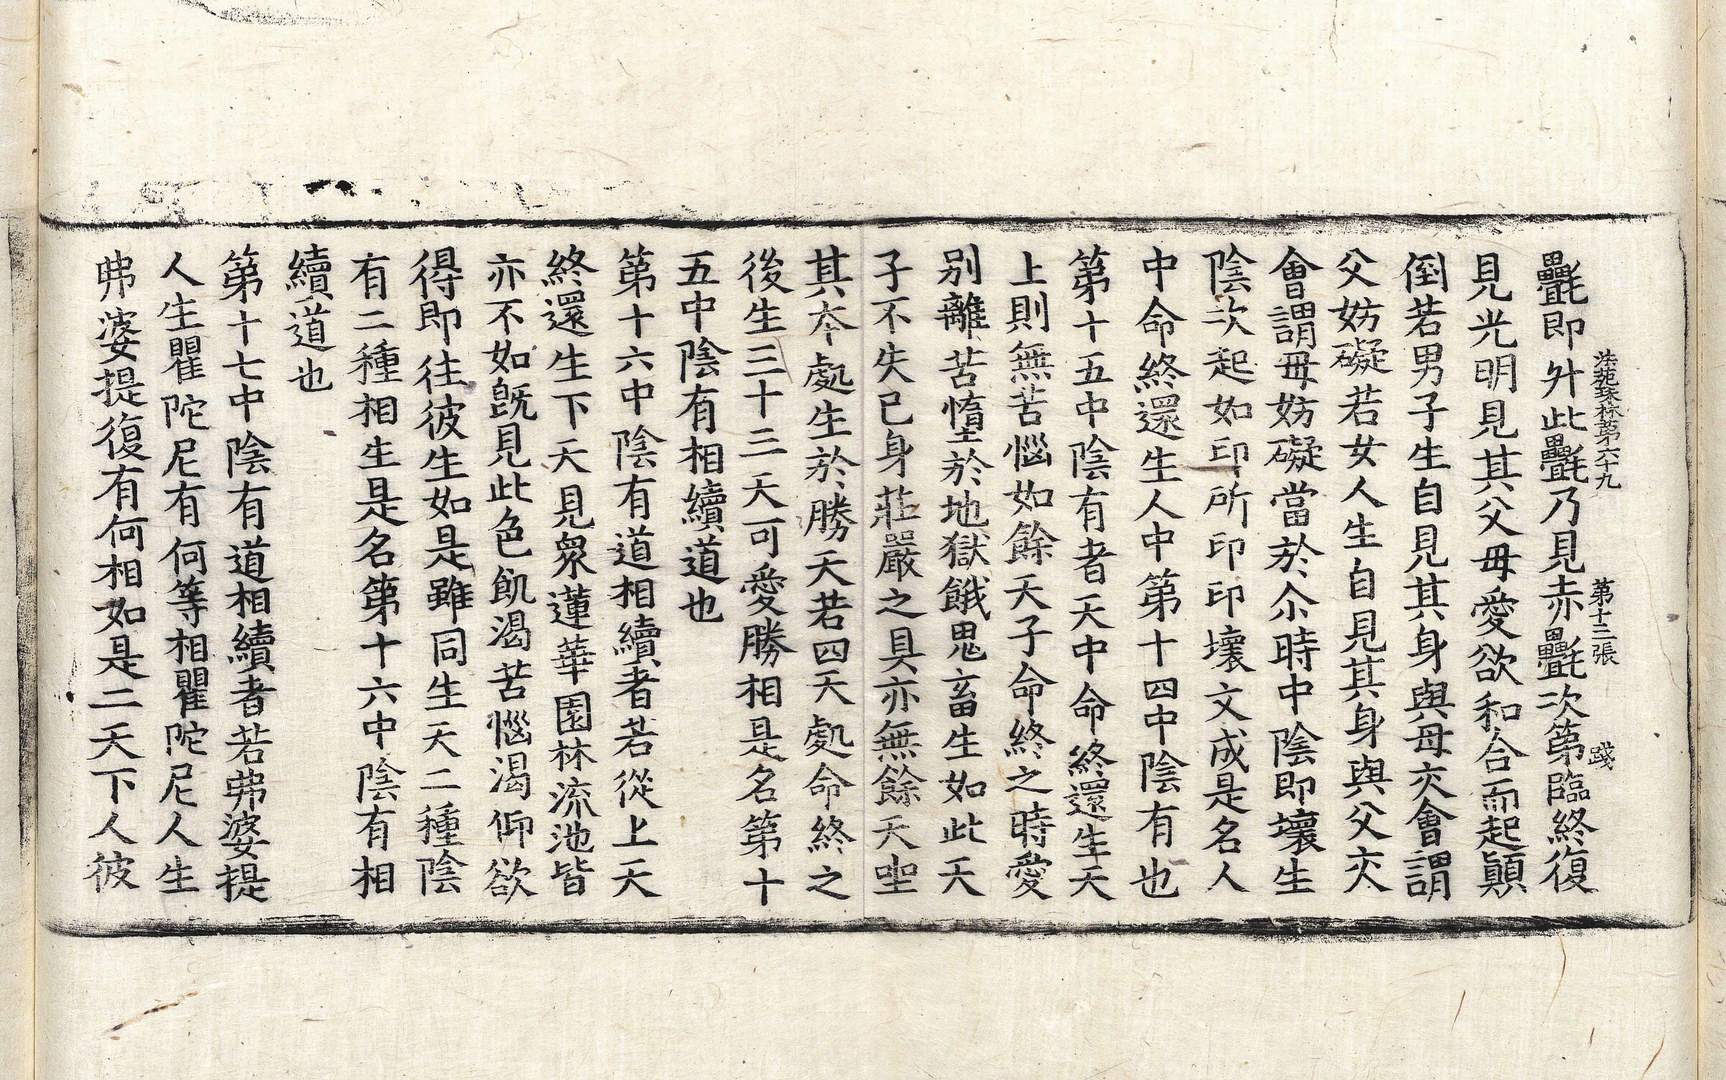 疊毛即外此氎乃見赤氎次第臨終復
法苑珠林第六十九　第十三張　踐
見光明見其父母愛欲和合而起顛
倒若男子生自見其身與母交會謂
父妨礙若女人生自見其身與父交
會謂母妨礙當於尒時中陰即壞生
陰次起如印所印印壞文成是名人
中命終還生人中第十四中陰有也
第十五中陰有者天中命終還生天
上則無苦惱如餘天子命終之時愛
別離苦墮於地獄餓鬼畜生如此天
子不失己身莊嚴之具亦無餘天坐
其本處生於勝天若四天處命終之
後生三十三天可愛勝相是名第十
五中陰有相續道也
第十六中陰有道相續者若從上天
終還生下天見衆蓮華園林流池皆
亦不如旣見此色飢渴苦惱渴仰欲
得即往彼生如是雖同生天二種陰
有二種相生是名第十六中陰有相
續道也
第十七中陰有道相續者若弗婆提
人生瞿陀尼有何等相瞿陀尼人生
弗婆提復有何相如是二天下人彼